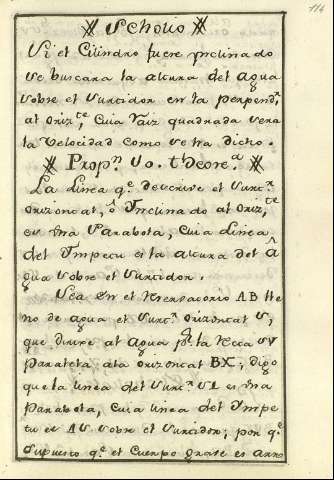 Scholio
Si el Cilindro fuere Ynclinado
se buscara la altura del agua
sobre el surtidor en la perpendr.
al orizte, cuia raiz quadrada sera
la Velocidad como se ha dicho.
Propn. theorea.
La Linea qe. descrive el surtr.
orizontal, ô Ynclinado al orizte
es una Parabola, cuia Linea
del Ympetu es la altura del A
gua sobre el surtidor.
Sea en el Receptacorio AB lle
no de agua el surtr. orizontal S,
que dirije al agua pr. la Recta SV
paralela ala orizontal BX; digo
que la linea del surtr. SL es una
Parabola, cuia linea del Ympe
tu es AS sobre el surtidor; por qe
supuesto qe. el cuerpo grave es arro